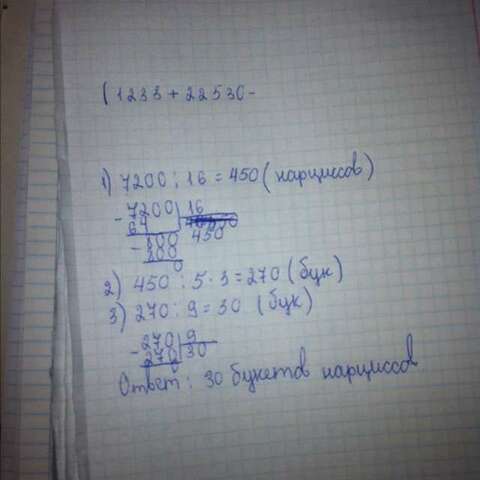 (1233+22530-
1) 7200 : 16 = 450 ( нарциссов)
- 7200 | 16
64 450
- 800
800
0
2) 450 : 5 · 3 = 270 ( бук)
3) 270 : 9 = 30 ( бук)
- 270 | 9
270 30
0
Ответ : 30 букетов нарциссов